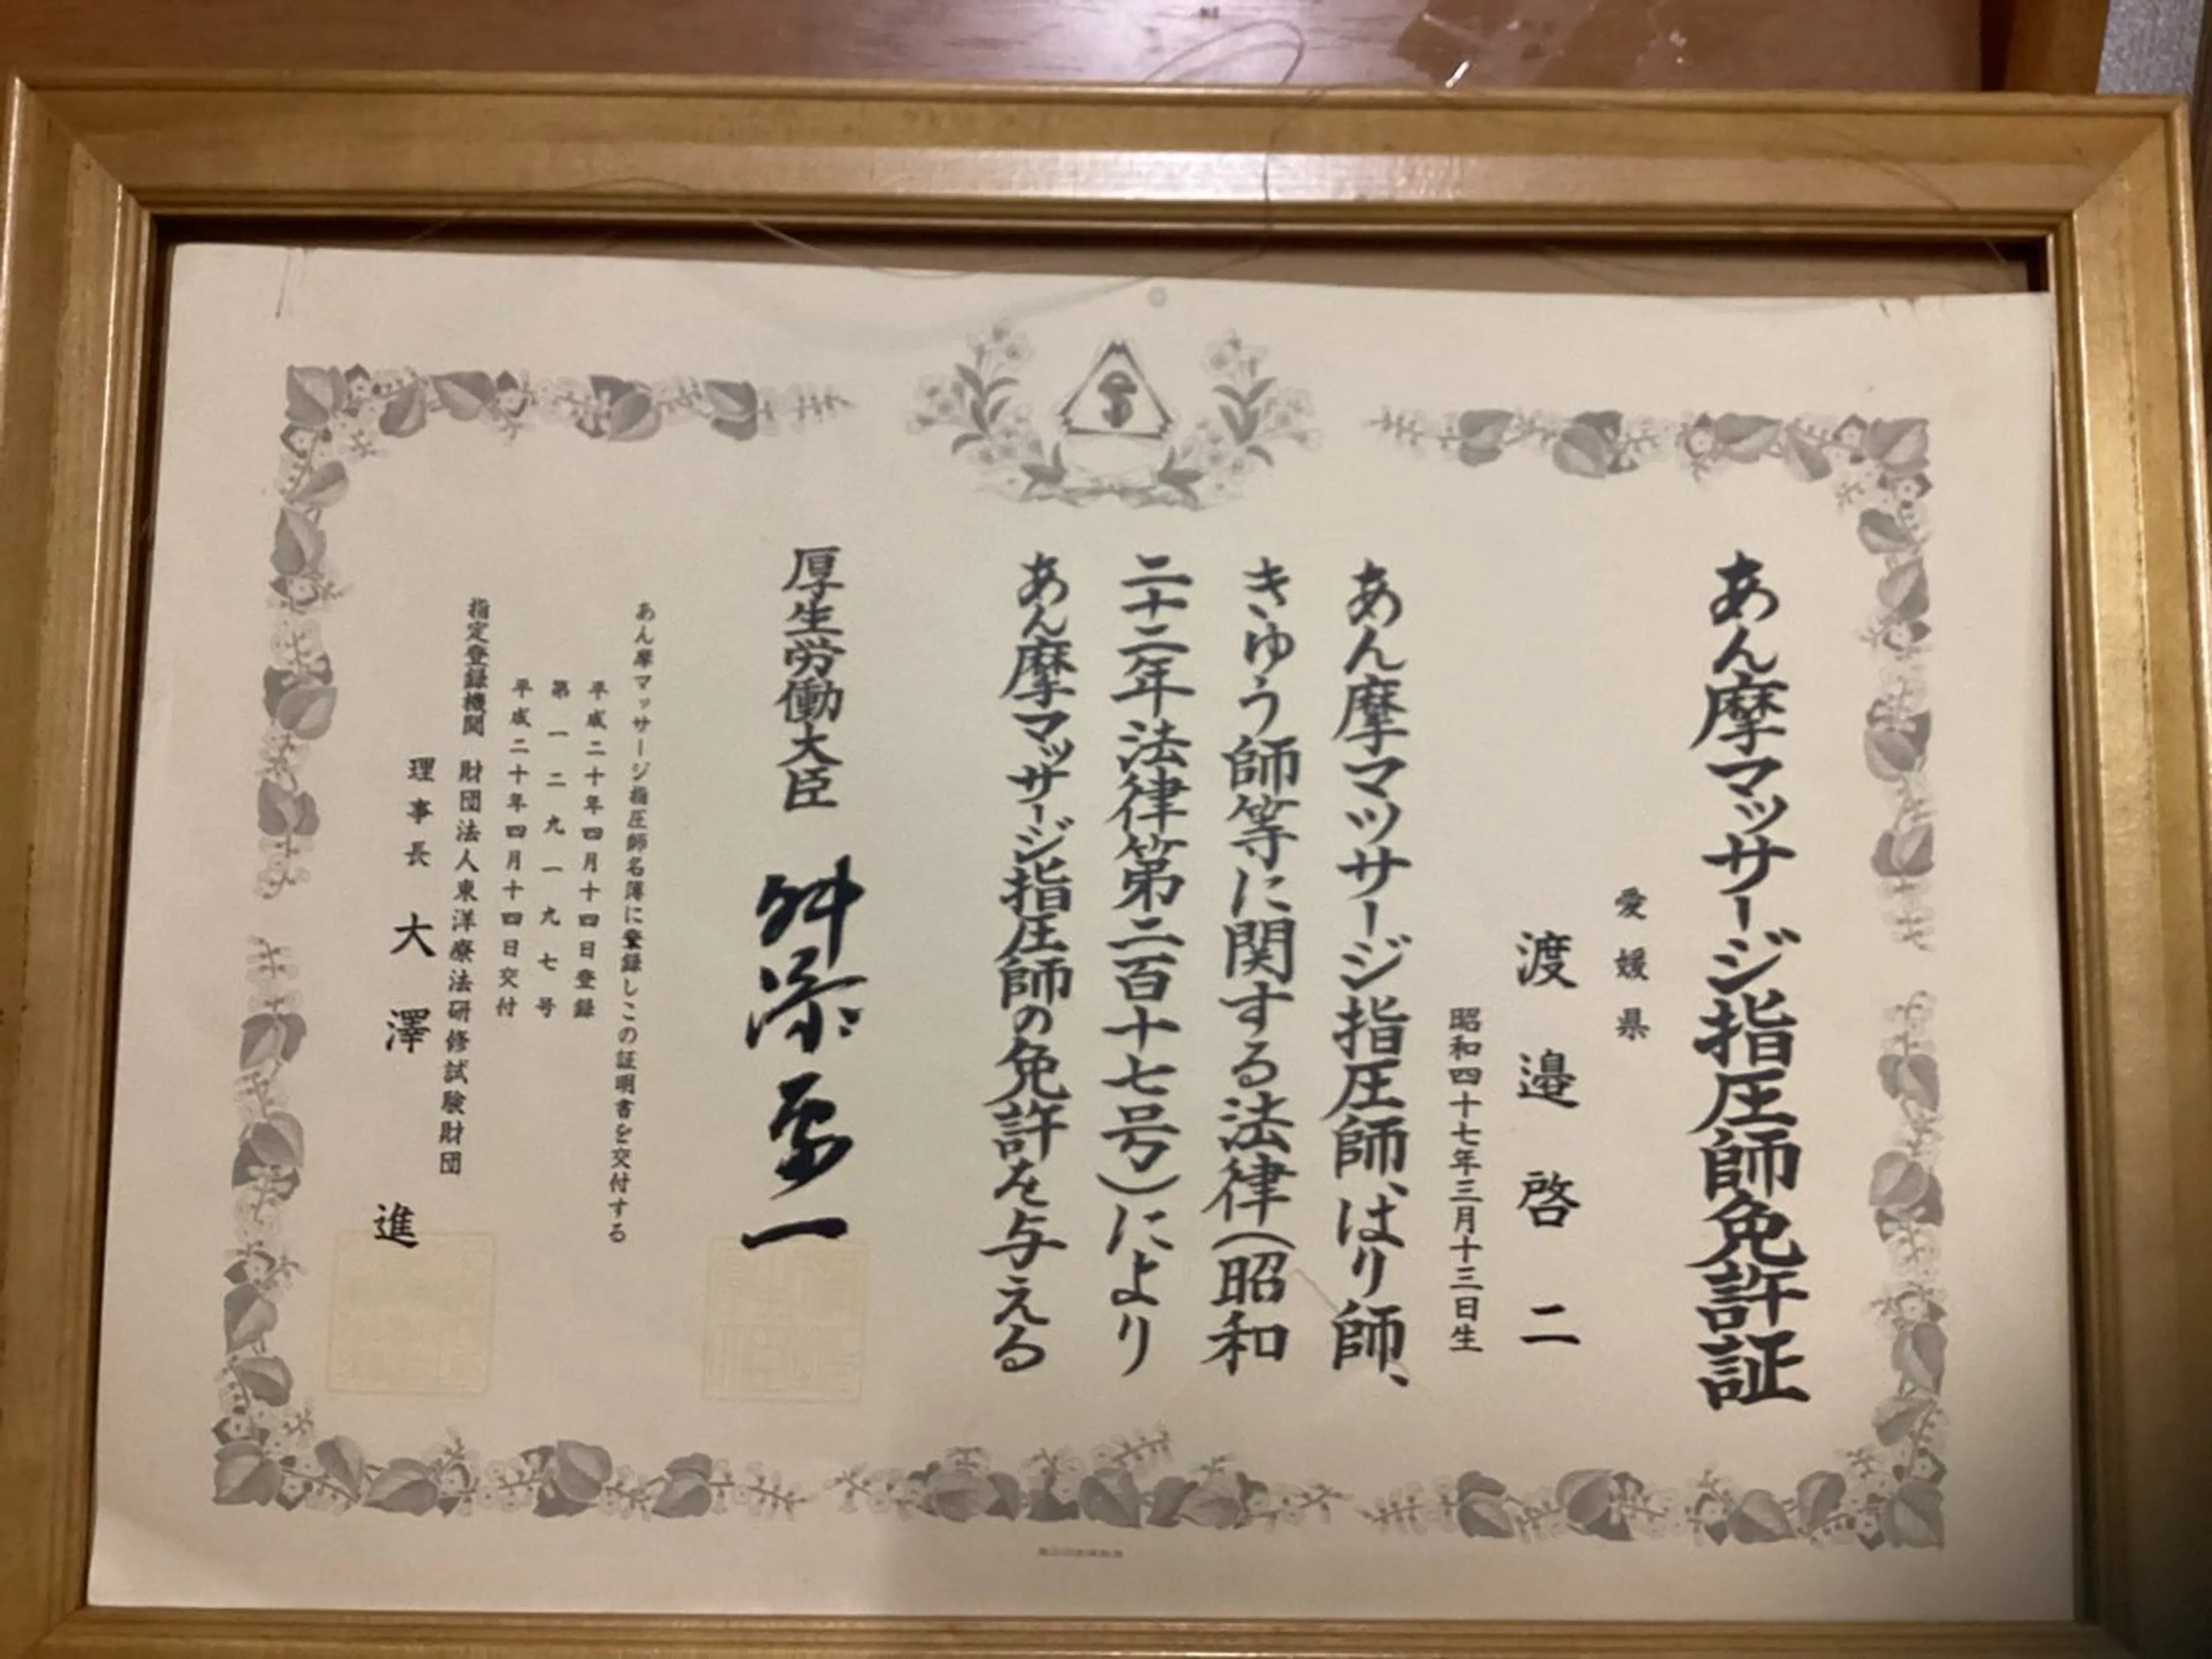 あん摩マッサージ指圧師免許証
愛媛県
渡邉啓二
昭和四十七年三月十三日生
あん摩マツサージ指圧師、はり師、
きゆう師等に関する法律(昭和
二十二年法律第二百十七号)により
あん摩マッサージ指圧師の免許を与える
厚生労働大臣 舛添要一
あん摩マッサージ指圧師名簿に登録しこの証明書を交付する
平成二十年四月十四日登録
第一二九一九七号
平成二十年四月十四日交付
指定登録機関 財団法人東洋療法研修試験財団
理事長 大澤進